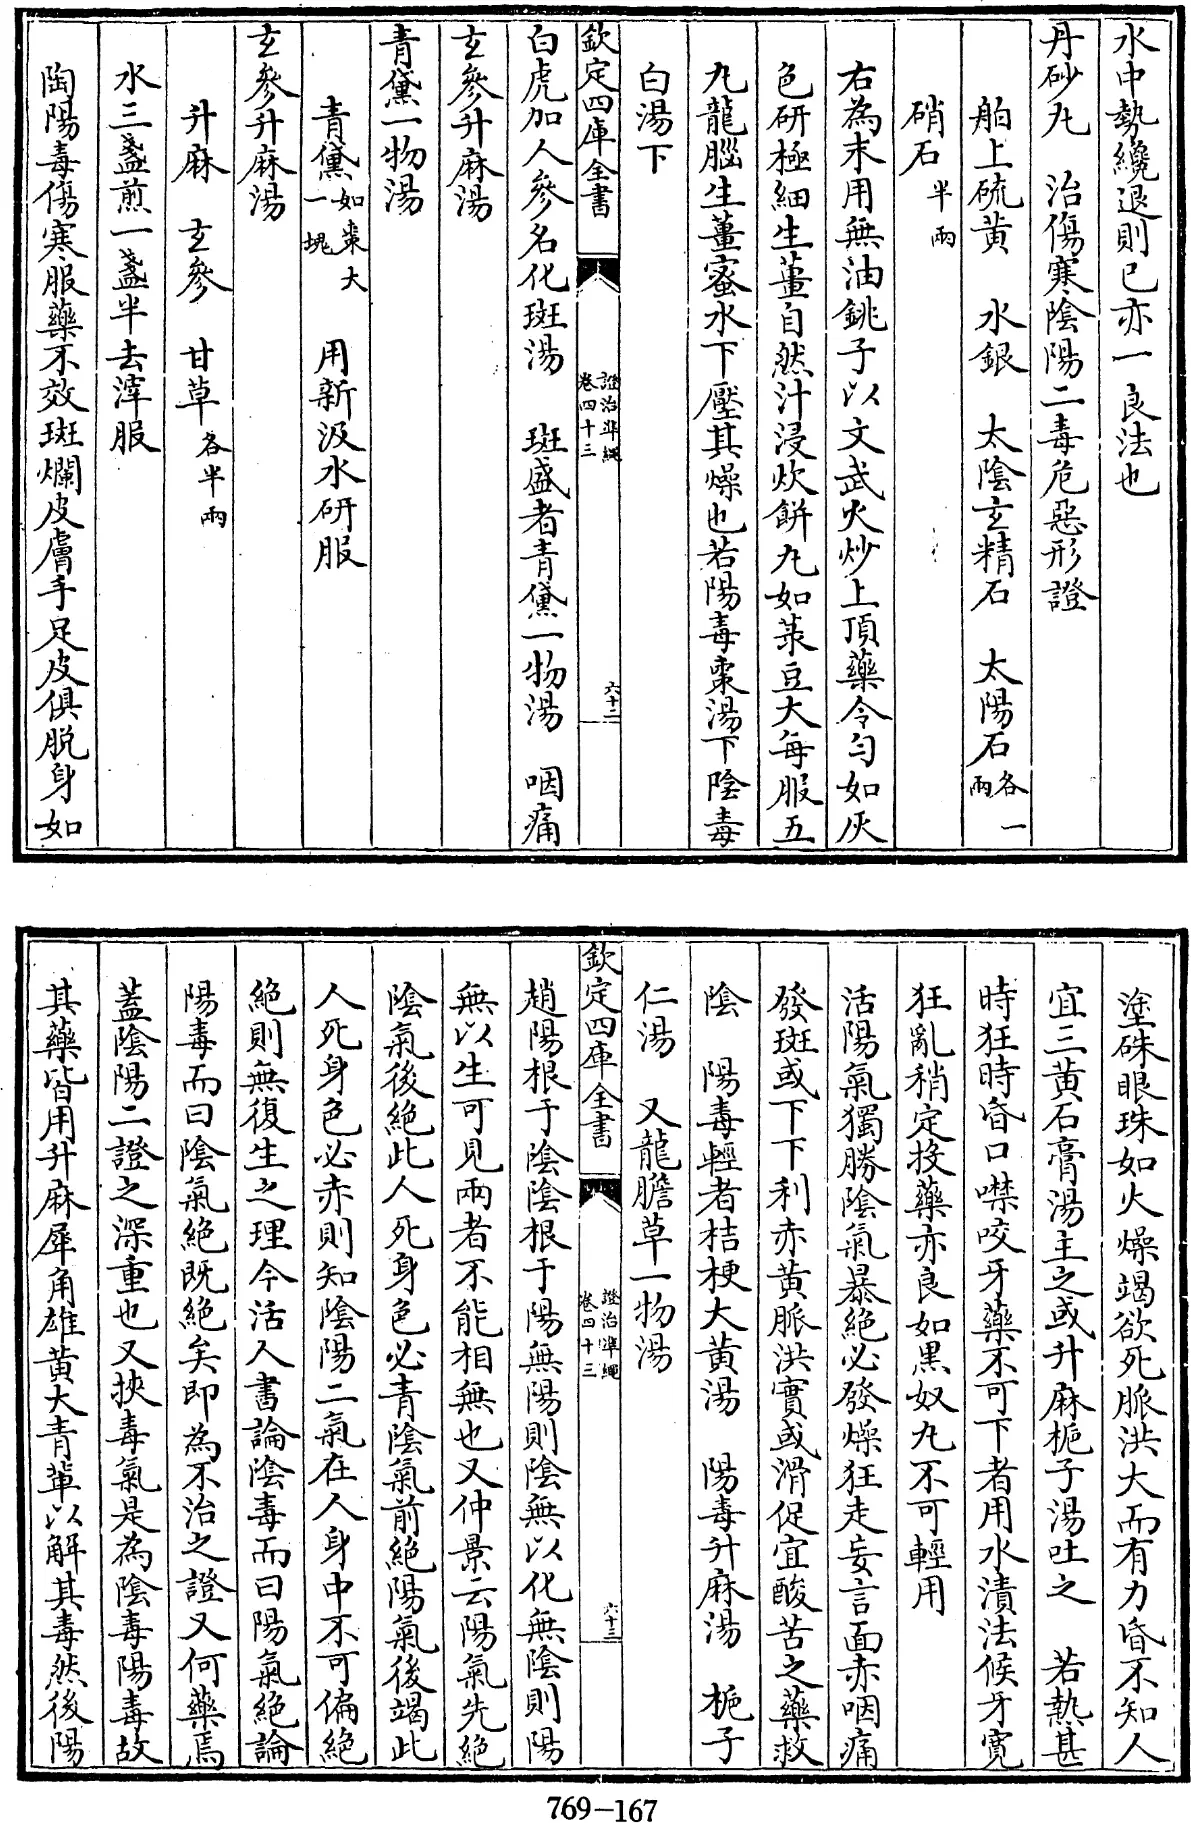 水中勢纔退則已亦一良法也
丹砂丸　治傷寒陰陽二毒危惡形證
舶上硫黄　水銀　太陰玄精石　太陽石各一兩
硝石半兩
右為末用無油銚子以文武火炒上頂藥令匀如灰
色研極細生薑自然汁浸炊餅丸如菉豆大每服五
丸龍腦生薑蜜水下壓其燥也若陽毒棗湯下陰毒
白湯下
欽定四庫全書　證治準繩卷四十三　六十二
白虎加人參名化斑湯　斑盛者青黛一物湯　咽痛
玄參升麻湯
青黛一物湯
青黛如棗大一塊　用新汲水研服
玄參升麻湯
升麻　玄參　甘草各半兩
水三盞煎一盞半去滓服
陶陽毒傷寒服藥不效斑爛皮膚手足皮俱脱身如
塗硃眼珠如火燥渴欲死脈洪大而有力昏不知人
宜三黄石膏湯主之或升麻梔子湯吐之　若熱甚
時狂時昏口噤咬牙藥不可下者用水漬法候牙寛
狂亂稍定投藥亦良如黒奴丸不可輕用
活陽氣獨勝陰氣暴絶必發燥狂走妄言面赤咽痛
發斑或下下利赤黄脈洪實或滑促宜酸苦之藥救
陰　陽毒輕者桔梗大黄湯　陽毒升麻湯　梔子
仁湯　又龍膽草一物湯
欽定四庫全書　證治準繩卷四十三　六十三
趙陽根于陰陰根于陽無陽則陰無以化無陰則陽
無以生可見兩者不能相無也又仲景云陽氣先絶
陰氣後絶此人死身色必青陰氣前絶陽氣後竭此
人死身色必赤則知陰陽二氣在人身中不可偏絶
絶則無復生之理今活人書論陰毒而曰陽氣絶論
陽毒而曰陰氣絶既絶矣即為不治之證又何藥焉
蓋陰陽二證之深重也又挾毒氣是為陰毒陽毒故
其藥皆用升麻犀角雄黄大青軰以解其毒然後陽
769-167